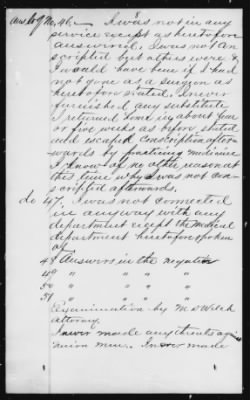 Ans to Q No. 46. I was not in any
service except as heretofore
answered. I was not con-
scripted but others were &
I would have been if I had
not gone as a surgeon as
heretofore stated. I never
furnished any substitute
I returned home in about four
or five weeks as before stated
and escaped conscription after-
wards by practicing medicine
I know of no other reason at
this time why I was not con-
scripted afterwards.
do 47. I was not connected
in any way with any
department except the medical
department heretofore spoken
of
48 Answers in the negative
49 " " " "
50 " " " "
51 " " " "
Examination by M D Welch
Attorney.
I never made any threats ag
union men. I never made